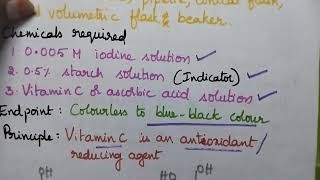 pipette, conical flask,
volumetric flask & beaker.
Chemicals required
1. 0.005 M iodine solution ✓
2. 0.5% starch solution (Indicator) ✓
3. Vitamin C or ascorbic acid solution ✓
Endpoint : Colourless to blue-black colour
Principle: Vitamin C is an antioxidant/
reducing agent
OH HO OH